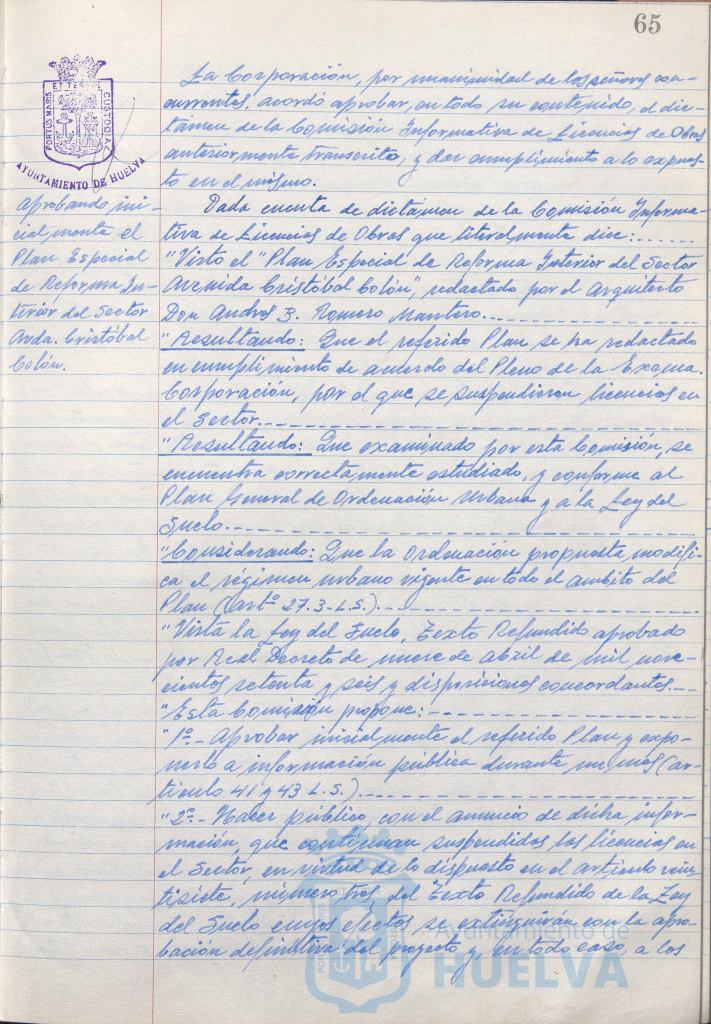 65
PORTUS MARIS ET TERRAE CUSTODIA
AYUNTAMIENTO DE HUELVA
aprobando ini-
cialmente el
Plan Especial
de Reforma In-
terior del Sector
Avda. Cristóbal
Colón.
La Corporación, por unanimidad de los señores con-
currentes, acordó aprobar, en todo su contenido, el dic-
támen de la Comisión Informativa de Licencias de Obras
anteriormente transcrito, y dar cumplimiento a lo expues-
to en el mismo.
Dada cuenta de dictámen de la Comisión Informa-
tiva de Licencias de Obras que literalmente dice:......
"Visto el "Plan Especial de Reforma Interior del Sector
Avenida Cristóbal Colón", redactado por el Arquitecto
Don Andres B. Romero Mantero.
"Resultando: Que el referido Plan se ha redactado
en cumplimiento de acuerdo del Pleno de la Excma.
Corporación, por el que se suspendieron licencias en
el Sector.
"Resultando: Que examinado por esta Comisión, se
encuentra correctamente estudiado, y conforme al
Plan General de Ordenación Urbana y a la Ley del
Suelo.
"Considerando: Que la Ordenación propuesta modifi-
ca el régimen urbano vigente en todo el ambito del
Plan (artº 27.3-L.S.).
"Vista la Ley del Suelo, Texto Refundido aprobado
por Real Decreto de nueve de abril de mil nove-
cientos setenta y seis y disposiciones concordantes.
"Esta Comisión propone:
"1º.- Aprobar inicialmente el referido Plan y expo-
nerlo a información pública durante un mes (ar-
tículo 41 y 43 L.S.).
"2º.- Hacer público, con el anuncio de dicha infor-
mación, que continuan suspendidas las licencias en
el Sector, en virtud de lo dispuesto en el artículo vein-
tisiete, número tres, del Texto Refundido de la Ley
del Suelo cuyos efectos se extinguirán con la apro-
bación definitiva del proyecto y, en todo caso, a los
Ayuntamiento de
HUELVA